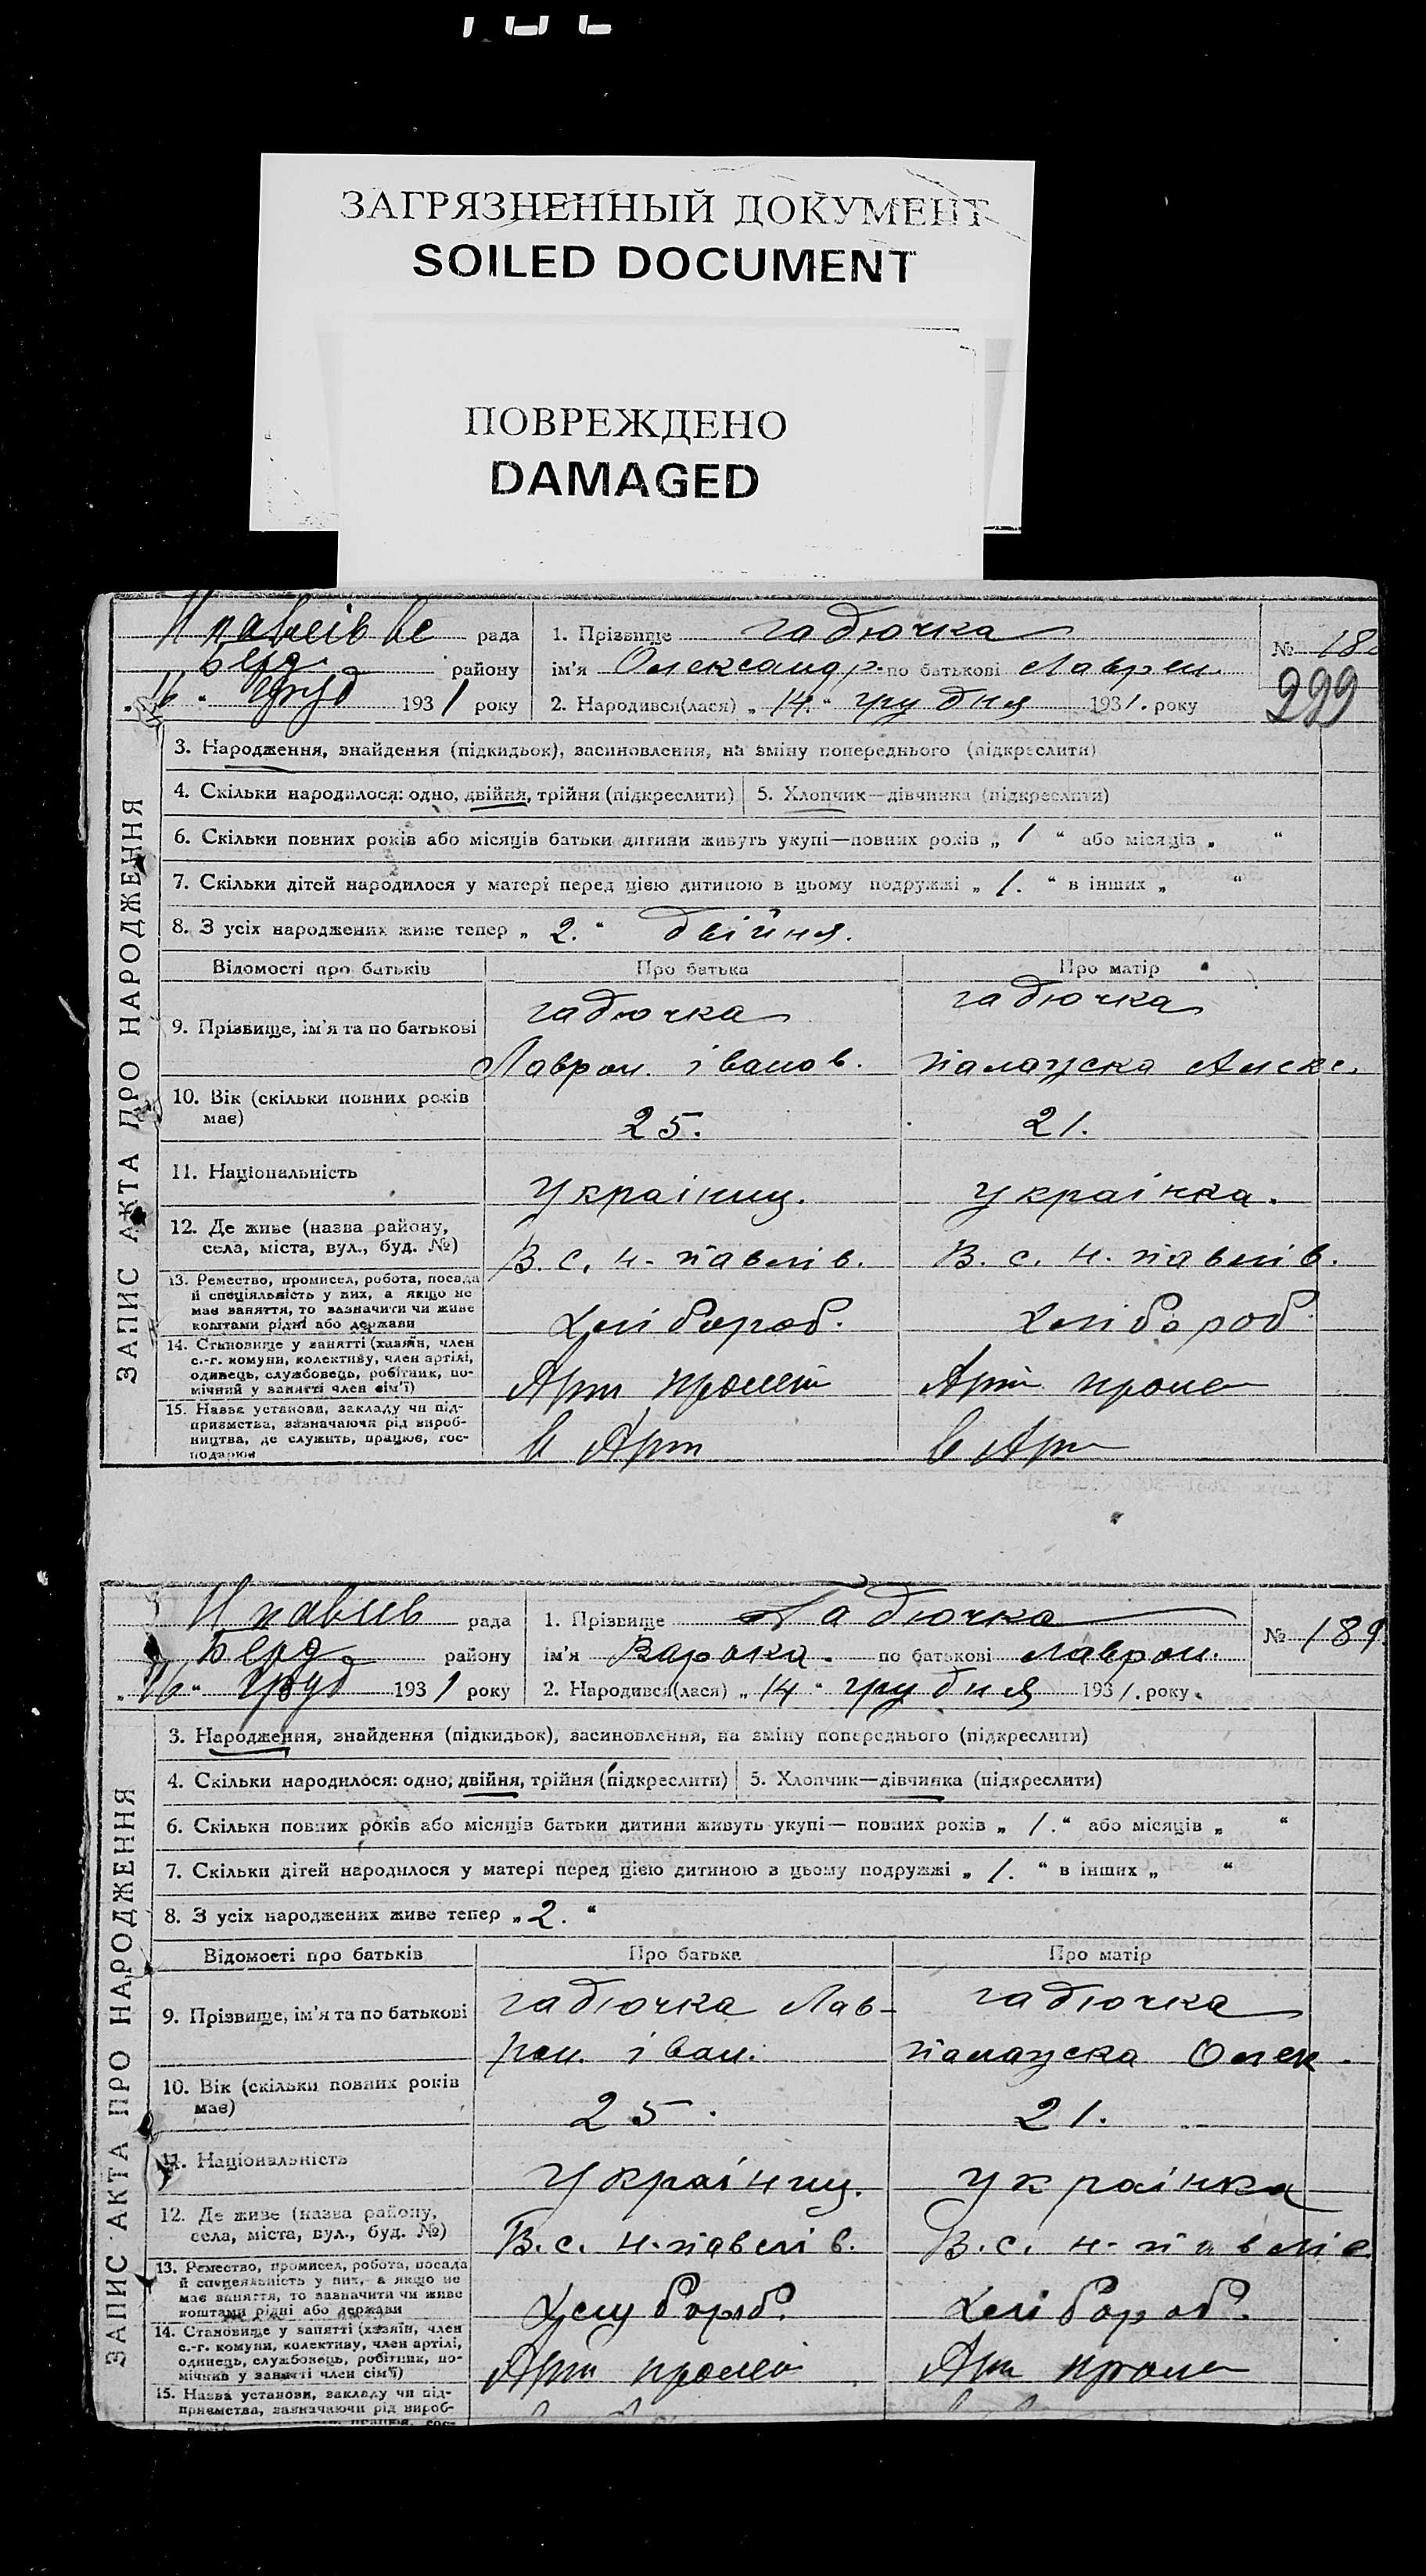 ЗАГРЯЗНЕННЫЙ ДОКУМЕНТ
SOILED DOCUMENT
ПОВРЕЖДЕНО
DAMAGED
ЗАПИС АКТА ПРО НАРОДЖЕННЯ
рада
Берд. району
"16" груд 1931 року
1. Прізвище гадючка
ім'я Олександр. по батькові Лаврен.
2. Народився(лася) „14.“ грудня 1931. року
№ 18
299
3. Народження, знайдення (підкидьок), засиновлення, на зміну попереднього (підкреслити)
4. Скільки народилося: одно, двійня, трійня (підкреслити)
5. Хлопчик—дівчинка (підкреслити)
6. Скільки повних років або місяців батьки дитини живуть укупі—повних років „ 1 “ або місяців „ “
7. Скільки дітей народилося у матері перед цією дитиною в цьому подружжі „ 1. “ в інших „ “
8. З усіх народжених живе тепер „ 2. “ двійня.
Відомості про батьків Про батька Про матір
9. Прізвище, ім'я та по батькові
гадючка гадючка
Лаврен. іванов. Алекс.
10. Вік (скільки повних років
має)
25. 21.
11. Національність
Українец. українка.
12. Де живе (назва району,
села, міста, вул., буд. №)
В. с. н-павлів. В. с. н-павлів.
13. Ремество, промисел, робота, посада
й спеціяльність у них, а якщо не
має заняття, то зазначити чи живе
коштами рідні або держави
Хлібороб. Хлібороб.
14. Становище у занятті (хазяїн, член
с.-г. комуни, колективу, член артілі,
одинець, службовець, робітник, по-
мічний у занятті член сім'ї)
Арт Арт
15. Назва установи, закладу чи під-
приємства, зазначаючи рід вироб-
ництва, де служить, працює, гос-
подарює
в Арт в Арт
ЗАПИС АКТА ПРО НАРОДЖЕННЯ
Н павлів рада
Берд. району
„16“ груд 1931 року
1. Прізвище Гадючка
ім'я Варочка. по батькові Лаврен.
2. Народився(лася) „14“ грудня 1931. року
№ 189
3. Народження, знайдення (підкидьок), засиновлення, на зміну попереднього (підкреслити)
4. Скільки народилося: одно, двійня, трійня (підкреслити)
5. Хлопчик—дівчинка (підкреслити)
6. Скільки повних років або місяців батьки дитини живуть укупі— повних років „ 1. “ або місяців „ “
7. Скільки дітей народилося у матері перед цією дитиною в цьому подружжі „ 1. “ в інших „ “
8. З усіх народжених живе тепер „ 2. “
Відомості про батьків Про батька Про матір
9. Прізвище, ім'я та по батькові
гадючка Лав- гадючка
рен. іван. Олек.
10. Вік (скільки повних років
має)
25. 21.
11. Національність
Українец. українка
12. Де живе (назва району,
села, міста, вул., буд. №)
В. с. н-павлів. В. с. н-павлів.
13. Ремество, промисел, робота, посада
й спецеяльність у них, а якщо не
має заняття, то зазначити чи живе
коштами рідні або держави
Хлібороб.
14. Становище у занятті (хазяїн, член
с.-г. комуни, колективу, член артілі,
одинець, службовець, робітник, по-
мічний у занятті член сім'ї)
Арт Арт
15. Назва установи, закладу чи під-
приємства, зазначаючи рід вироб-